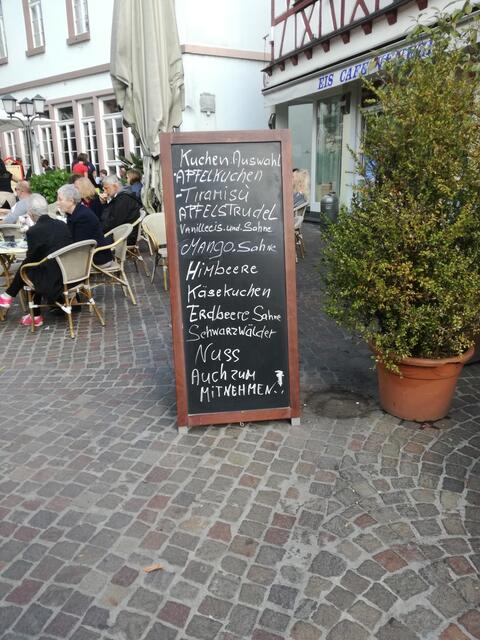 EIS CAFE
Kuchen Auswahl
-APFELKUCHEN
-Tiramisù
APFELSTRUDEL
Vanilleeis und Sahne
MANGO. Sahne
Himbeere
Käsekuchen
Erdbeere Sahne
Schwarzwälder
Nuss
Auch zum
MITNEHMEN..!